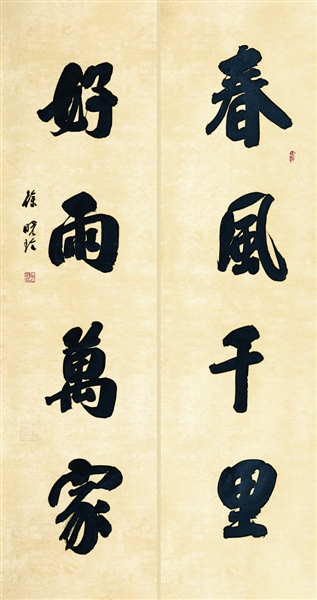 春風千里
好雨萬家
徐曉玲